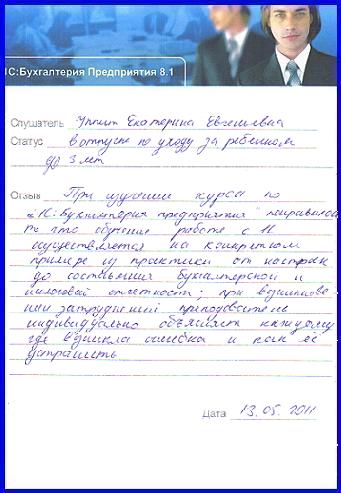 1С:Бухгалтерия Предприятия 8.1
Слушатель Екатерина Евгеньевна
Статус в отпуске по уходу за ребенком
до 3 лет
Отзыв При изучении курса по
"1С:Бухгалтерия предприятия" понравилось
то что обучение работе с 1С
осуществляется на конкретном
примере из практики от настроек
до составления бухгалтерской и
налоговой отчетности; при возникнове-
нии затруднений преподаватель
индивидуально объяснял каждому
где возникла ошибка и как ее
устранить
Дата 13.05.2011